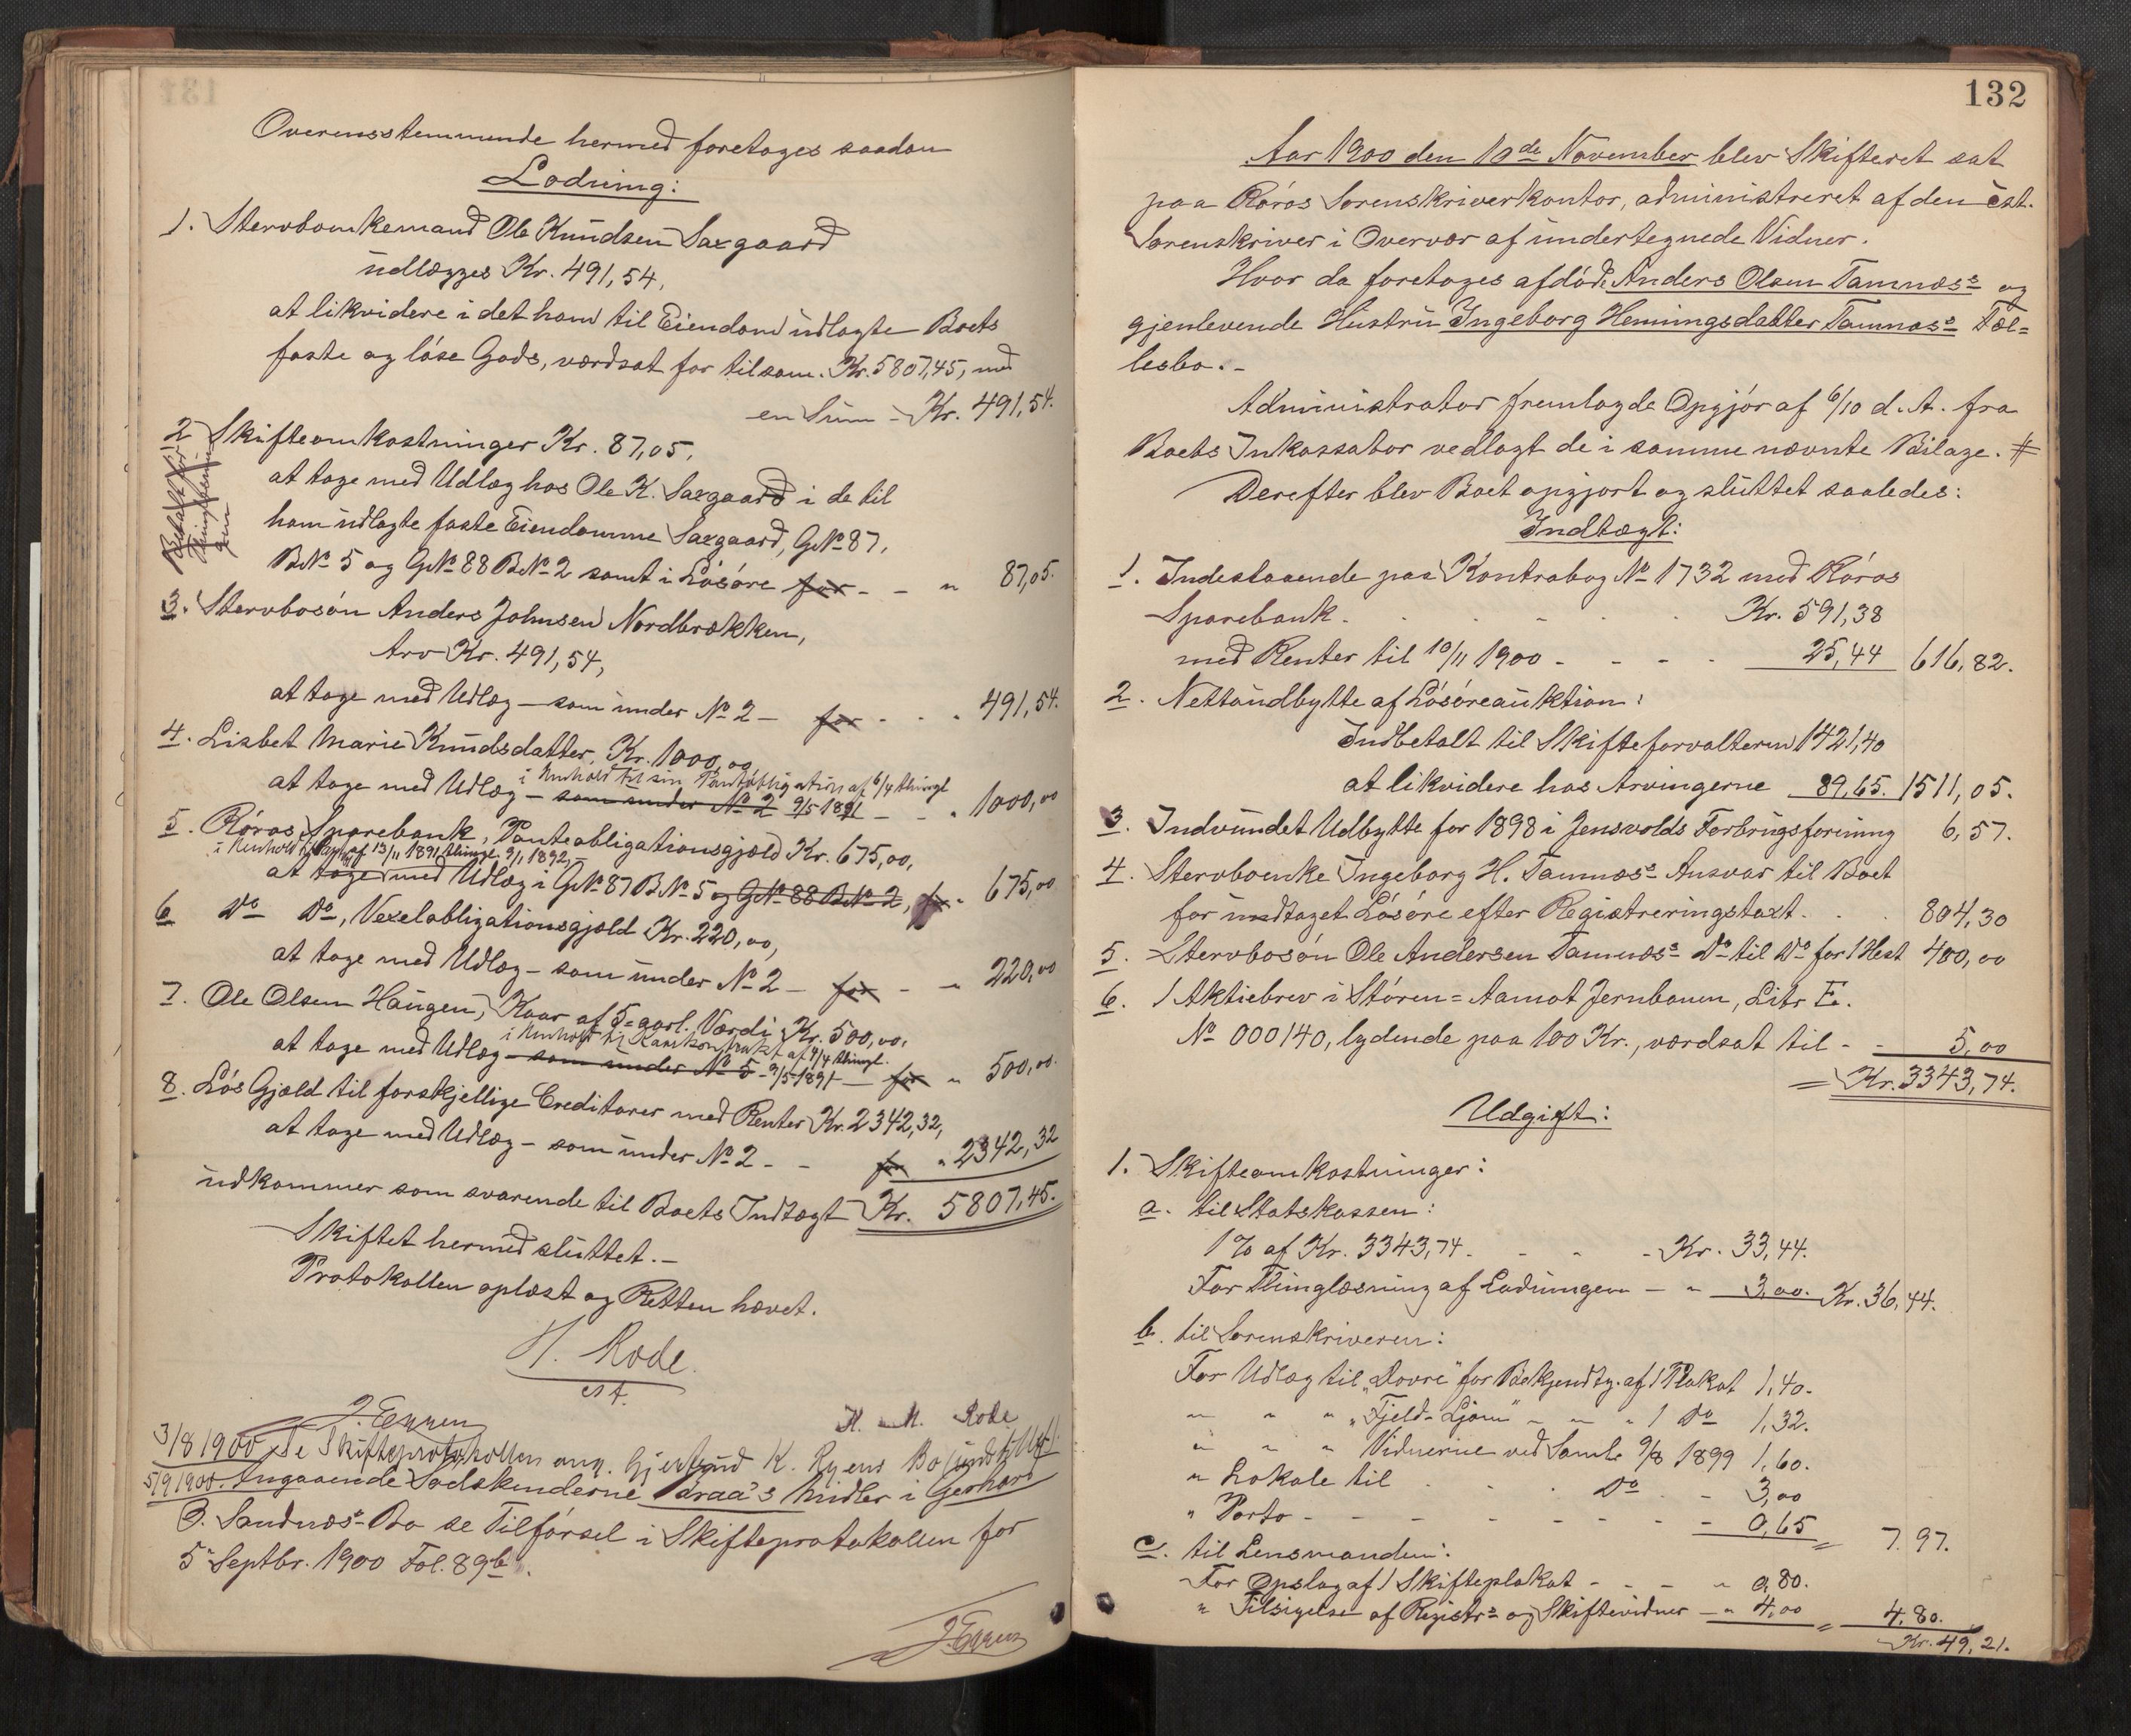 Overensstemmende hermed foretages saadan
Lodning:
1. Stervboenkemand Ole Knudsen Saxgaard
udlægges Kr. 491,54,
at likvidere i det ham til Eiendom udlagte Boets
faste og løse Gods, værdsat for tilsam. Kr. 5807,45, med
en Sum - Kr. 491,54.
2 Skifteomkostninger Kr. 87,05,
at tage med Udlæg hos Ole K. Saxgaard i de til
ham udlagte faste Eiendomme Saxgaard, G.No 87,
B.No 5 og G.No 88 B.No 2 samt i Løsøre for - - " 87,05.
3. Stervbosøn Anders Johnsen Nordbrækken,
Arv Kr. 491,54,
at tage med Udlæg - som under No 2 - for - - " 491,54.
4. Lisbet Marie Knudsdatter, Kr. 1000,00
i Henhold til sin Pantobligation af 6/4 thingl
at tage med Udlæg - som under No 2 9/5 1891 - - " 1000,00
5. Røros Sparebank, Panteobligationsgjæld Kr. 675,00,
i Henhold til Pant af 13/11 1891, thingl. 9/1 1892,
at tage med Udlæg i G.No 87 B.No 5 og G.No 88 B.No 2, for " 675,00
6 Do Do, Vexelobligationsgjæld Kr. 220,00,
at tage med Udlæg - som under No 2 - for - " 220,00
7. Ole Olsen Haugen, Kaar af 5-aarl. Værdi Kr. 500,00,
i Henhold til Kaarkontrakt af 9/4 thingl.
at tage med Udlæg - som under No 5 - 9/5 1891 - for " 500,00.
8. Løs Gjæld til forskjellige Creditorer med Renter Kr. 2342,32,
at tage med Udlæg - som under No 2 - - for " 2342,32
udkommer som svarende til Boets Indtægt Kr. 5807,45.
Skiftet hermed sluttet. -
Protokollen oplæst og Retten hævet.
H. Rode
cst.
J. Eggen
H. M. Rode
3/8 1900 Se Skifteprotokollen ang. Gjertrud K. Ryens Bo
5/9 1900. Angaaende Sødskenderne Aaraa's Midler i Gerhard
B. Sandnæs's Bo se Tilførsel i Skifteprotokollen for
5te Septbr. 1900 Fol. 89b.
J. Eggen
132
Aar 1900 den 10de November blev Skifteret sat
paa Røros Sorenskriverkontor, administreret af den cst.
Sorenskriver i Overvær af undertegnede Vidner.
Hvor da foretages afdøde Anders Olsen Tamnæs's og
gjenlevende Hustru Ingeborg Henningsdatter Tamnæs's Fæl=
lesbo. -
Administrator fremlagde Opgjør af 6/10 d. A. fra
Boets Inkassator vedlagt de i samme nævnte Bilage. #
Derefter blev Boet opgjort og sluttet saaledes:
Indtægt:
1. Indestaaende paa Kontrabog No 1732 med Røros
Sparebank - Kr. 591,38
med Renter til 10/11 1900 - - - - 25,44 616,82.
2. Nettoudbytte af Løsøreauktion:
Indbetalt til Skifteforvalteren 1421,40
at likvidere hos Arvingerne 89,65. 1511,05.
3. Indvundet Udbytte for 1898 i Jensvolds Forbrugsforening 6,57.
4. Stervboenke Ingeborg H. Tamnæs's Ansvar til Boet
for modtaget Løsøre efter Registreringstaxt. . . 804,30
5. Stervbosøn Ole Andersen Tamnæs's Do til Do for 1 Hest 400,00
6. 1 Aktiebrev i Støren=Aamot Jernbanen, Litr E.
No 000140, lydende paa 100 Kr., værdsat til - - 5,00
= Kr. 3343,74.
Udgift:
1. Skifteomkostninger:
a. til Statskassen:
1% af Kr. 3343,74 - - - - Kr. 33,44.
For Thinglæsning af Lodningen - " 3,00. Kr. 36,44.
b. til Sorenskriveren:
For Udlæg til "Dovre" for Bekjendtg. af 1 Plakat 1,40.
" " " "Fjeld-Ljom" " " " 1 Do 1,32.
" " " Vidnerne ved Samle 9/8 1899 1,60.
" Lokale til - - - Do - - 3,00
" Porto - - - - - - - - 0,65 = 7,97.
c. til Lensmanden:
For Opslag af 1 Skifteplakat - - - " 0,80.
" Tilsigelse af Registr.s og Skiftevidner - " 4,00 = 4,80.
Kr. 49,21.